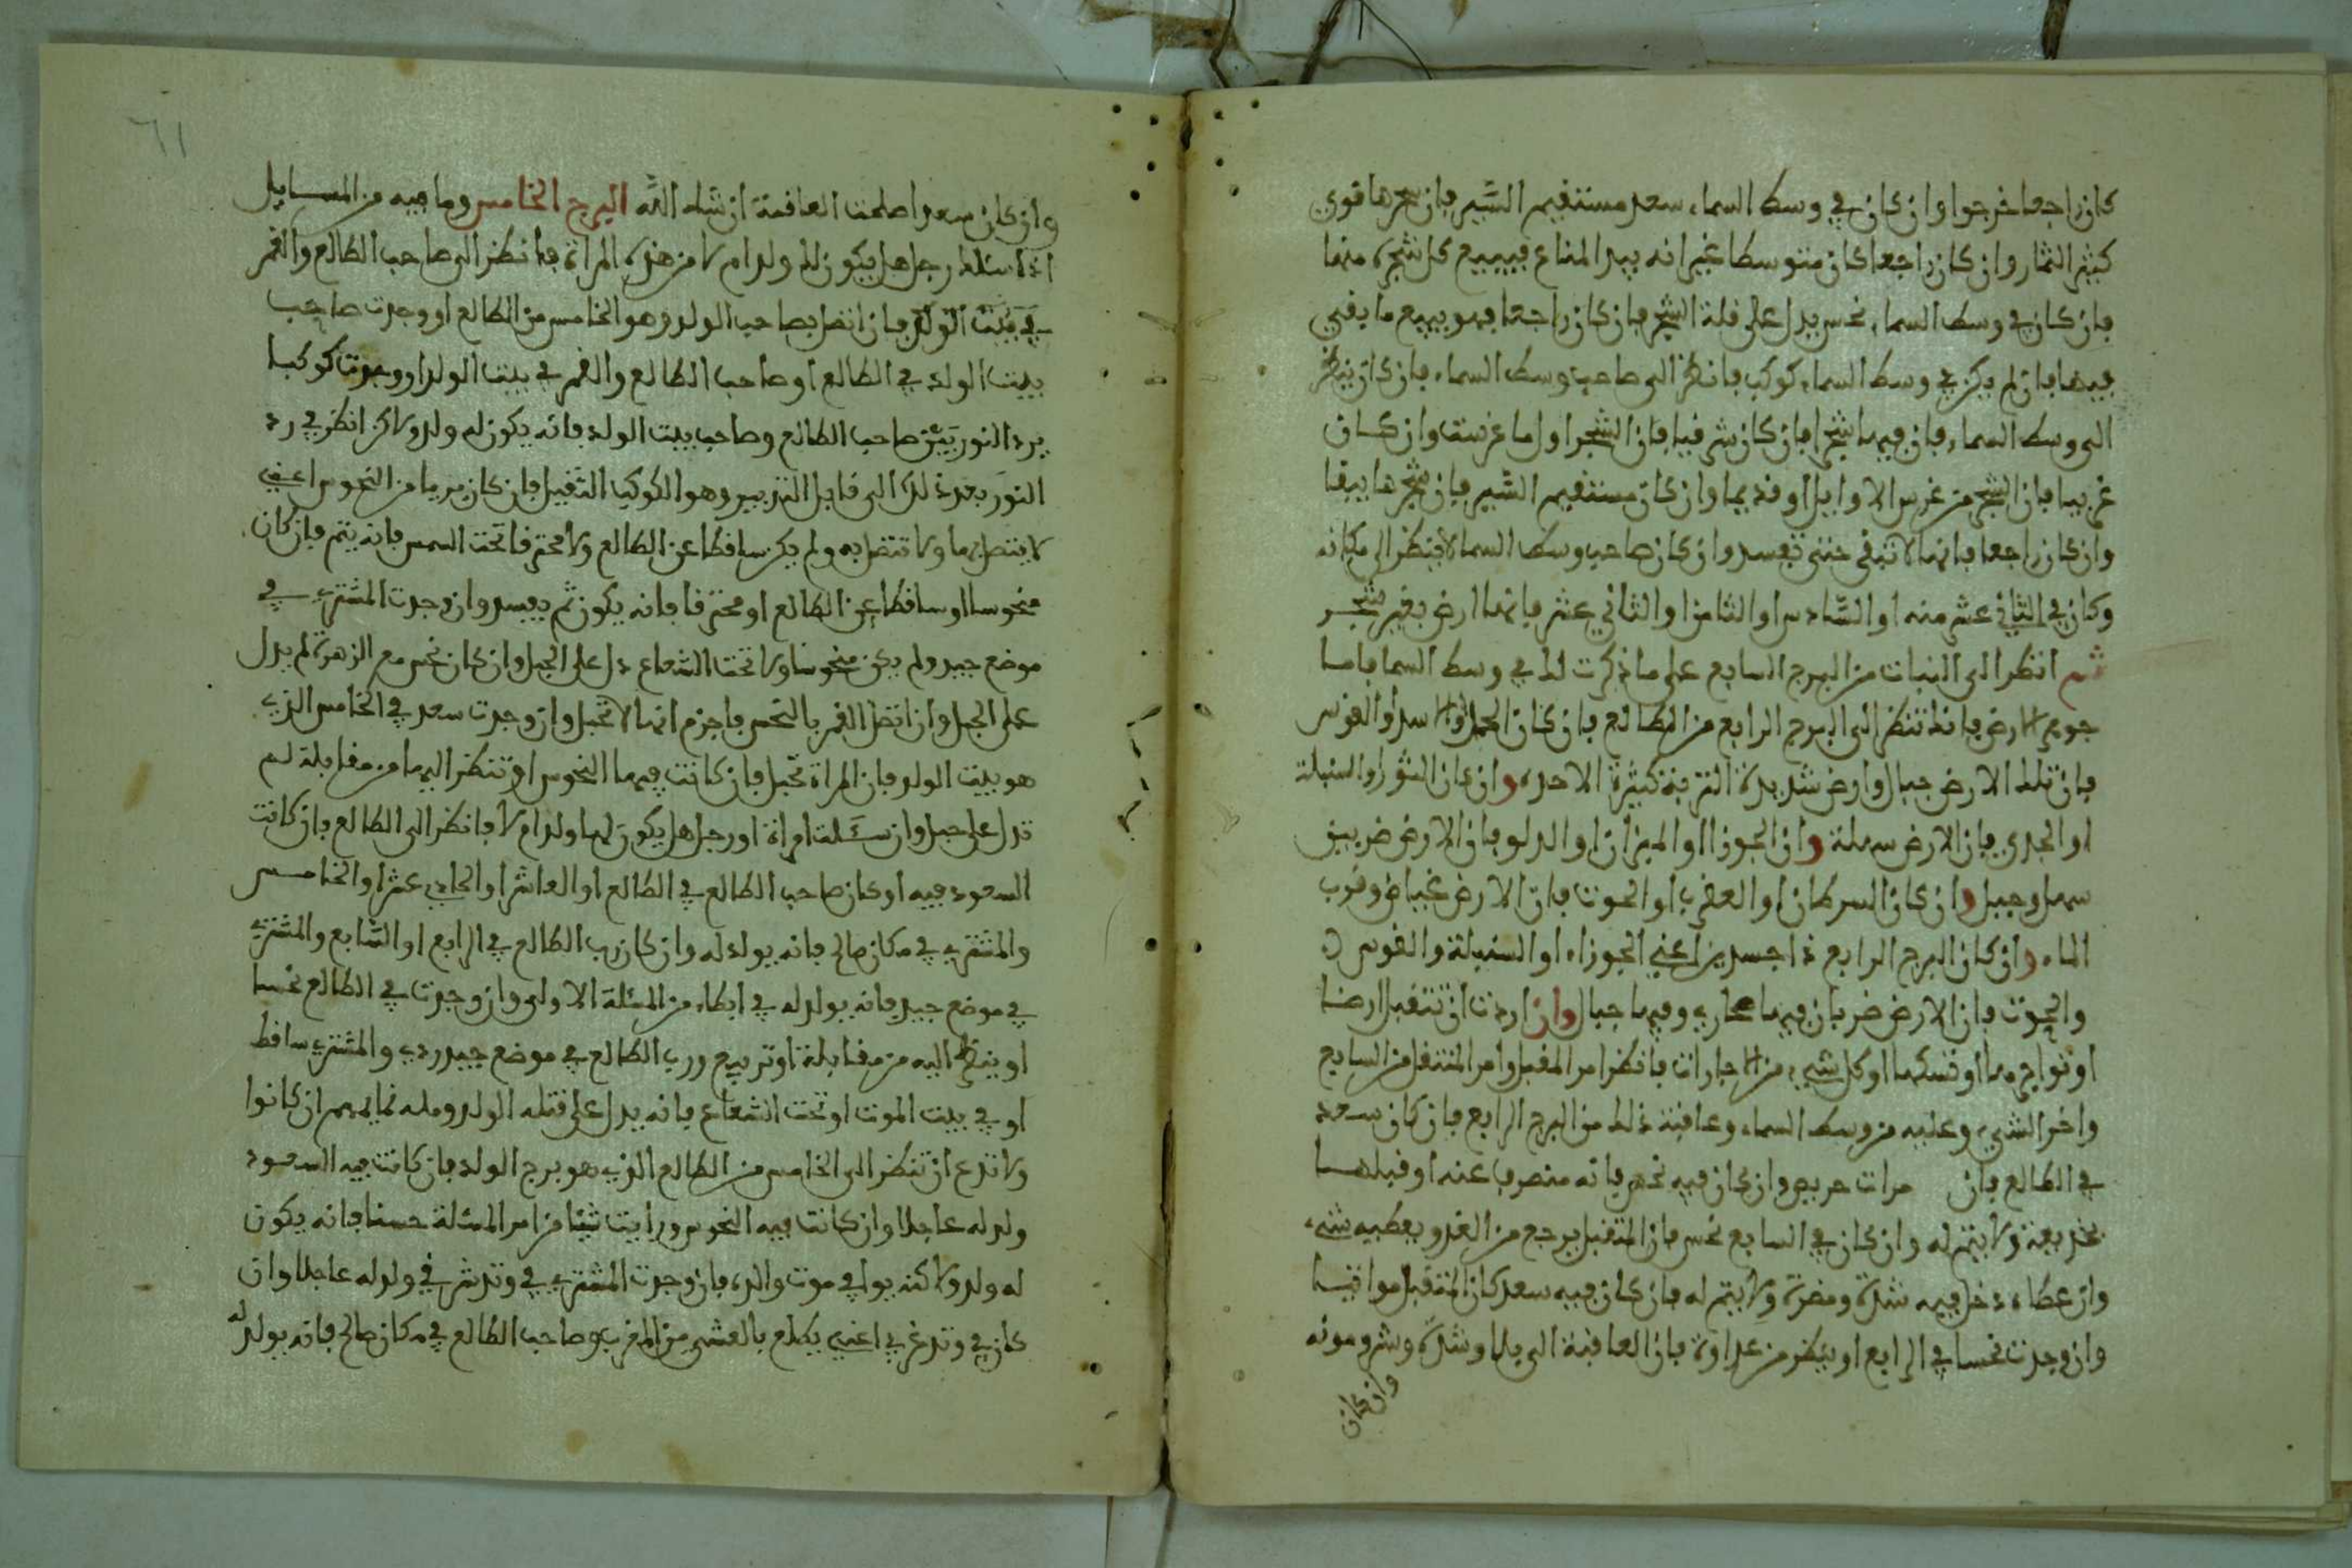 كان راجعا خرجوا وان كان في وسط السماء سعد مستقيم السير فان شجرها قوي
كثير الثمار وان كان راجعا كان متوسطا غير انه يبدا المتاع فيبيع كل شجرة منها
فان كان في وسط السماء نحس يدل على قلة الشجر فان كان راجعا فهو يبيع ما بقي
فيها فان لم يكن في وسط السماء كوكب فانظر الى صاحب وسط السماء فان كان ينظر
الى وسط السماء فان فيها شجرا فان كان شرقيا فان الشجر اول ما غرست وان كان
غربيا فان الشجر من غرس الاوايل او قديما وان كان مستقيم السير فان شجرها يبقا
وان كان راجعا فانها لا تبقى حتى تفسد وان كان صاحب وسط السما لا ينظر الى مكانه
وكان في الثاني عشر منه او السادس او الثامن او الثاني عشر فانها ارض بغير شجر
ثم انظر الى النبات من البرج السابع على ما ذكرت لك في وسط السما فاما
جوهر الارض فانك تنظر الى البرج الرابع من الطالع فان كان الحمل او الاسد او القوس
فان تلك الارض جبال وارض شديدة التربة كثيرة الاحدة وان كان الثور او السنبلة
او الجدي فان الارض سهلة وان الجوزا او الميزان او الدلو فان الارض ضربين
سهل وجبل وان كان السرطان او العقرب او الحوت فان الارض غياض وقرب
الماء وان كان البرج الرابع ذا جسدين اعني الجوزاء او السنبلة والقوس
والحوت فان الارض ضربان فيها صحاري وفيها جبال وان اردت ان تتقبل ارضا
او تواجرها او تسكنها او كل شيء من الاجارات فانظر امر المقبل وامر المتقبل من السابع
واخر الشيء وعليه من وسط السماء وعاقبة ذلك من البرج الرابع فان كان سعد
في الطالع فان مرات حريص وان كان فيه نحس فانه منصرف عنه او قبلها
بخديعة ولا يتم له وان كان في السابع نحس فان المتقبل يرجع من الغد ويعطيه شيء
وان عطاه دخل فيه شدة ومضرة ولا يتم له فان كان فيه سعد كان المتقبل موافقا
وان وجدت نحسا في الرابع او ينظر من عداوة فان العاقبة الى بلا وشدة وشر ومونه
وان كان
٦١
وان كان سعدا صلحت العاقبة ان شاء الله البرج الخامس وما فيه من المسايل
اذا سئلك رجل هل يكون لك ولد ام لا من هذه المراة فانظر الى صاحب الطالع والقمر
في بيت الولد فان اتصل بصاحب الولد وهو الخامس من الطالع او وجدت صاحب
بيت الولد في الطالع او صاحب الطالع والقمر في بيت الولد او وجدت كوكبا
يرد النور بين صاحب الطالع وصاحب بيت الولد فانه يكون له ولد ولاكن انظر في رد
النور بعد ذلك الى قابل التدبير وهو الكوكب الثقيل فان كان بريا من النحوس اعني
لا يتصل بها ولا تتصل به ولم يكن ساقطا عن الطالع ولا محترقا تحت الشمس فانه يتم فان كان
منحوسا او ساقطا عن الطالع او محترقا فانه يكون ثم يفسد وان وجدت المشتري في
موضع جيد ولم يكن منحوسا ولا تحت الشعاع دل على الحبل وان كان نحس مع الزهرة لم يدل
على الحبل وان اتصل القمر بالنحس فاجزم انها لا تحبل وان وجدت سعد في الخامس الذي
هو بيت الولد فان المراة تحبل فان كانت فيها النحوس او تنظر اليها من مقابلة لم
تدل على حبل وان سئلت امراة او رجل هل يكون لها ولد ام لا فانظر الى الطالع فان كانت
السعود فيه او كان صاحب الطالع في الطالع او العاشر او الحادي عشر او الخامس
والمشتري في مكان صالح فانه يولد له وان كان رب الطالع في الرابع او السابع والمشتري
في موضع جيد فانه يولد له في ابطاء من المسئلة الاولى وان وجدت في الطالع نحسا
او ينظر اليه من مقابلة او تربيع ورب الطالع في موضع جيد ردي والمشتري ساقط
او في بيت الموت او تحت الشعاع فانه يدل على قتله الولد ان كانوا
ولا تدع ان تنظر الى الخامس من الطالع الذي هو برج الولد فان كانت فيه السعود
ولد له عاجلا وان كانت فيه النحوس ورايت شيئا من امر المسئلة حسنا فانه يكون
له ولد ولاكنه يوافي موت والده فان وجدت المشتري في وتد شرقي ولد له عاجلا وان
كان في وتد غربي اعني يطلع بالعشي من المغرب وصاحب الطالع في مكان صالح فانه يولد له